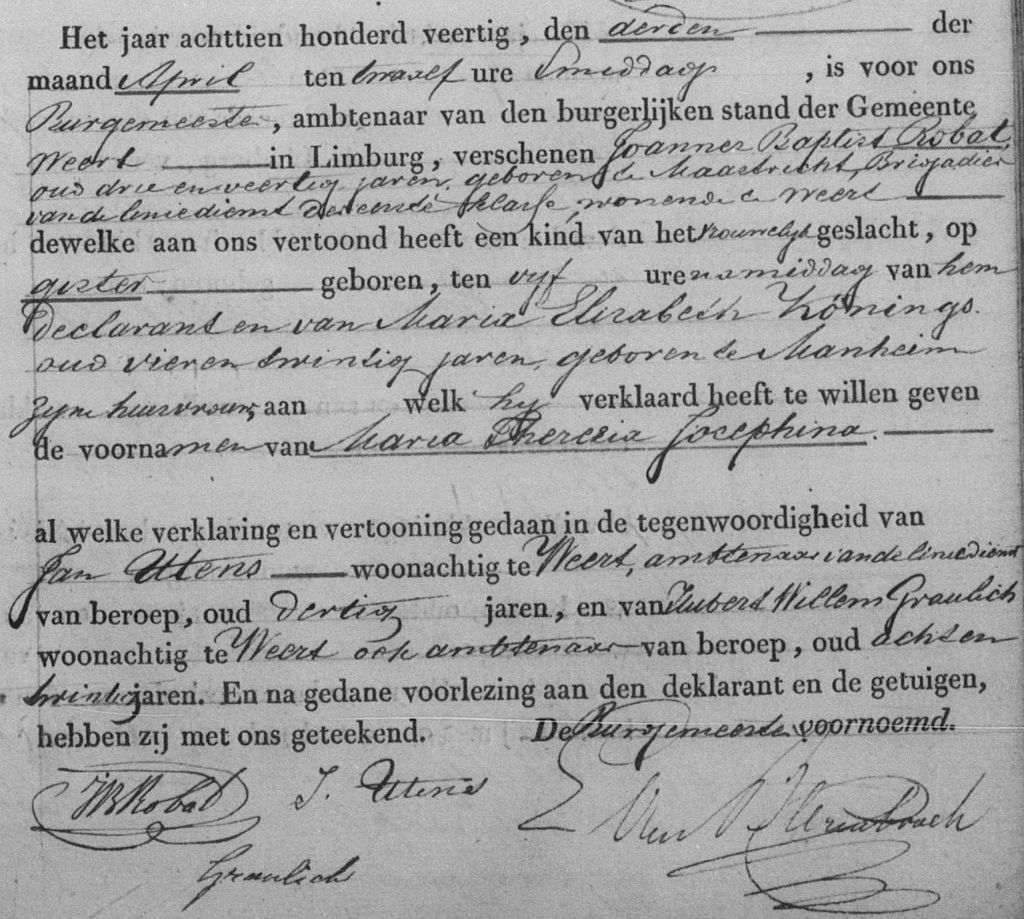 Het jaar achttien honderd veertig, den derden der
maand April ten twaalf ure Smiddags, is voor ons
Burgemeester, ambtenaar van den burgerlijken stand der Gemeente
Weert in Limburg, verschenen Joannes Baptist Robat,
oud drie en veertig jaren, geboren te Maastricht, Brigadier
van de liniedienst der eerste klasse, wonende te Weert
dewelke aan ons vertoond heeft een kind van het vrouwelijk geslacht, op
gister geboren, ten vyf ure namiddag van hem
declarant en van Maria Elizabeth Könings.
oud vier en twintig jaren, geboren te Manheim
zyne huisvrouw, aan welk hy verklaard heeft te willen geven
de voornamen van Maria Theresia Josephina.
al welke verklaring en vertooning gedaan in de tegenwoordigheid van
Jan Utens woonachtig te Weert, ambtenaar van de liniedienst
van beroep, oud dertig jaren, en van Hubert Willem Graulich
woonachtig te Weert ook ambtenaar van beroep, oud acht en
twintig jaren. En na gedane voorlezing aan den deklarant en de getuigen,
hebben zij met ons geteekend. De Burgemeester voornoemd.
JB Robat J. Utens
Graulich